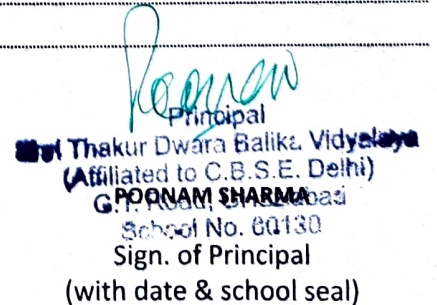 Poonam
Principal
Shri Thakur Dwara Balika Vidyalaya
(Affiliated to C.B.S.E. Delhi)
G.T. Road, Ghaziabad
POONAM SHARMA
School No. 60130
Sign. of Principal
(with date & school seal)